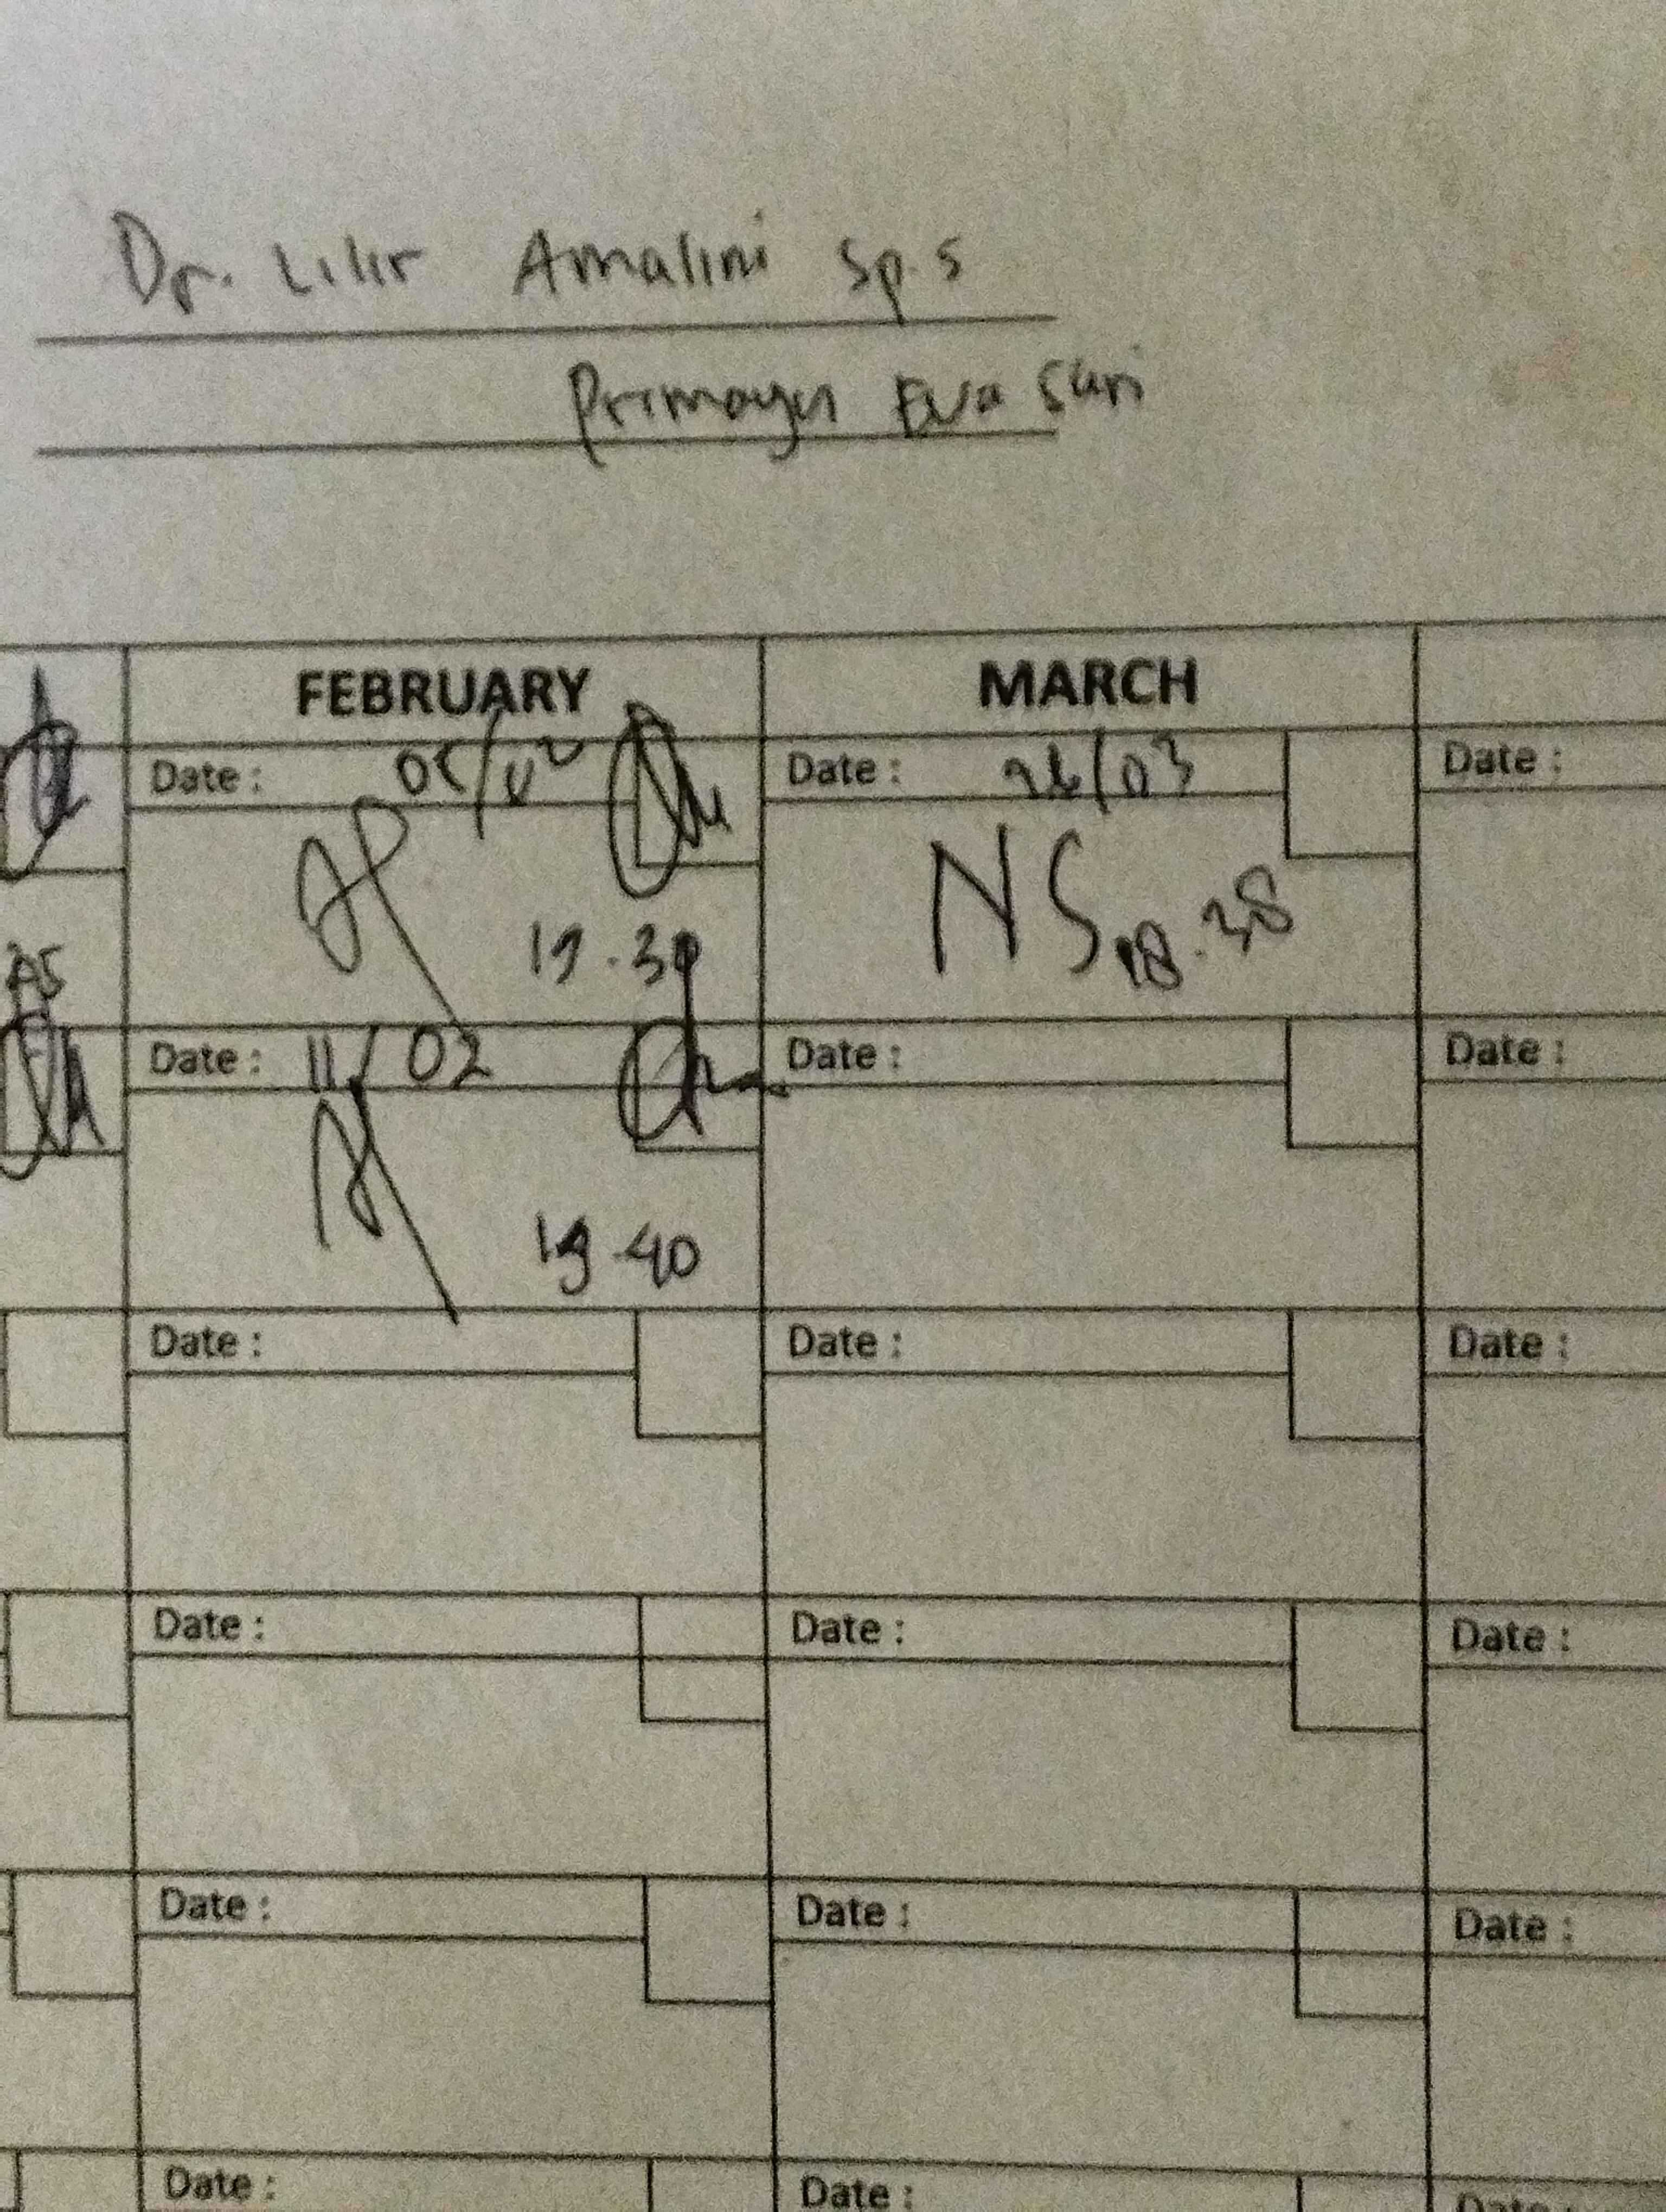 Dr. Lilir Amalini Sp.S
Primaya Eva Sari
FEBRUARY MARCH
Date : 05/02 Date : 26/03 Date :
19.30 NS 18.38
AS
Date : 11/02 Date : Date :
19.40
Date : Date : Date :
Date : Date : Date :
Date : Date : Date :
Date : Date : Date :